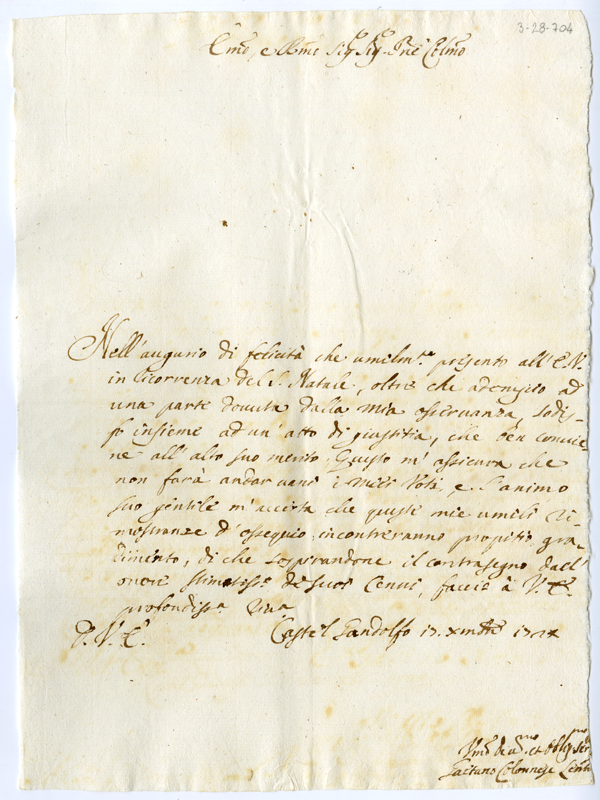 3-28-704
Em̃o, e Rm̃o Sig.r Sig.r Pnẽ Col.mo
Nell'augurio di felicità che umilm.te presento all'E.V.
in ricorrenza del S. Natale, oltre che adempio ad
una parte dovuta dalla mia osservanza, sodis-
fo insieme ad un'atto di giustitia, che ben convie-
ne all'alto suo merito. Questo m'assicura che
non farà andar vani i miei Voti, e l'animo
suo gentile m'accerta che queste mie umili ri-
mostranze d'ossequio, incontreranno propitio gra-
dimento, di che sospirandone il contrasegno dall'
onore stimatiss.o de suoi Cenni, faccio à V.E.
profondiss.a riv.a
D.V.E.
Castel Gandolfo 17. Xmbre
Um.o dev.mo et obblig.mo ser.
Gaetano Colonnese